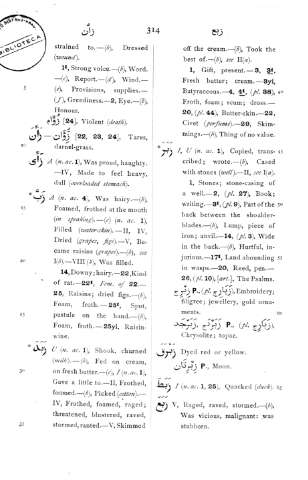 زأن
314
زبع
BIBLIOTECA
strained to.—(b), Dressed
(wound).
1ᵇ, Strong voice.—(b), Word.
—(c), Report.—(d), Wind.—
(e), Provisions, supplies.—
(f), Greediness.—2, Eye.—(b),
Hoopoe.
[24]. Violent (death).
[22, 23, 24], Tares,
darnel-grass.
A (n. ac. 1), Was proud, haughty.
—IV, Made to feel heavy,
dull (overloaded stomach).
A (n. ac. 4), Was hairy.—(b),
Foamed, frothed at the mouth
(in speaking).—(c) (n. ac. 1),
Filled (water-skin).—II, IV,
Dried (grapes, figs).—V, Be-
came raisins (grapes).—(b), see
I(b).—VIII (b), Was filled.
14, Downy; hairy.—22, Kind
of rat.—22ᵗ, Fem. of 22.—
25, Raisins; dried figs.—(b),
Foam, froth.—25ᵗ, Spot,
pustule on the hand.—(b),
Foam, froth.—25yi, Raisin-
wine.
U (n. ac. 1), Shook, churned
(milk).—(b), Fed on cream,
on fresh butter.—(c), I (n. ac. 1),
Gave a little to.—II, Frothed,
foamed.—(b), Picked (cotton).—
IV, Frothed, foamed, raged;
threatened, blustered, raved,
stormed, ranted.—V, Skimmed
off the cream.—(b), Took the
best of.—(b), see II(a).
1, Gift, present.—3, 3ᵗ,
Fresh butter; cream.—3yi,
Butyraceous.—4, 4ᵗ, (pl. 38),
Froth, foam; scum; dross.—
20, (pl. 44), Butter-skin.—22,
Civet (perfume).—20, Skim-
mings.—(b), Thing of no value.
I, U (n. ac. 1), Copied, trans-
cribed; wrote.—(b), Cased
with stones (well).—II, see I(a).
1, Stones; stone-casing of
a well.—2, (pl. 27), Book;
writing.—3ᵗ, (pl. 9), Part of the
back between the shoulder-
blades.—(b), Lump, piece of
iron; anvil.—14, (pl. 3), Wide
in the back.—(b), Hurtful, in-
jurious.—17ᵗ, Land abounding
in wasps.—20, Reed, pen.—
26, (pl. 10), [art.], The Psalms.
زبرج P., (pl. زبارج), Embroidery;
filigree; jewellery, gold orna-
ments.
زبرجد, زبردج P., (pl. زبارج),
Chrysolite; topaz.
Dyed red or yellow.
زبرقان P., Moon.
I (n. ac. 1, 25), Quacked (duck).
V, Raged, raved, stormed.—(b),
Was vicious, malignant: was
stubborn.